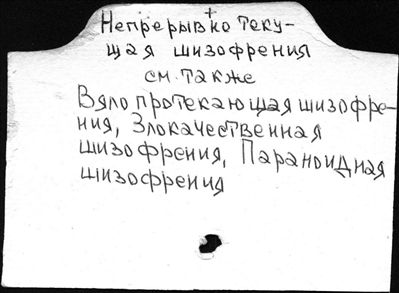 Непрерывно теку-
щая шизофрения
см. также
Вялопротекающая шизофре-
ния, Злокачественная
шизофрения, Параноидная
шизофрения